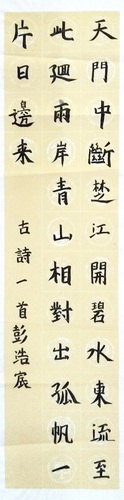 天門中斷楚江開碧水東流至
此廻兩岸青山相對出孤帆一
片日邊来
古詩一首彭浩宸